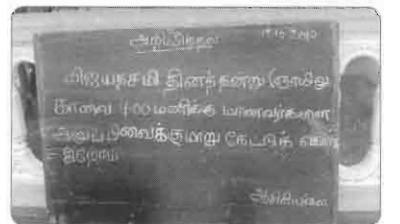 அறிவித்தல்
விஜயதசமி தினத்தன்று (ஞாயிறு
காலை 9.00 மணிக்கு மாணவர்களை
அனுப்பிவைக்குமாறு கேட்டுக் கொள்
= கிறோம்
ஆசிரியர்கள்